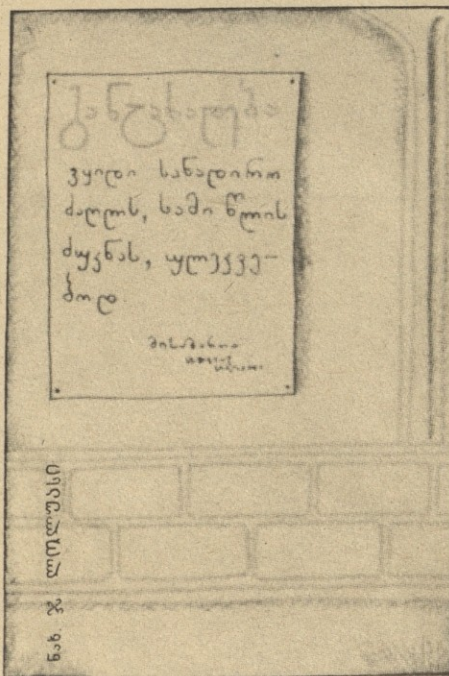 განცხადება
ვყიდი სანადირო
ძაღლს, სამი წლის
ძუკნას, ულეკვე-
ბოდ
მისამართი
ნახ. ჯ. ლოლუასი